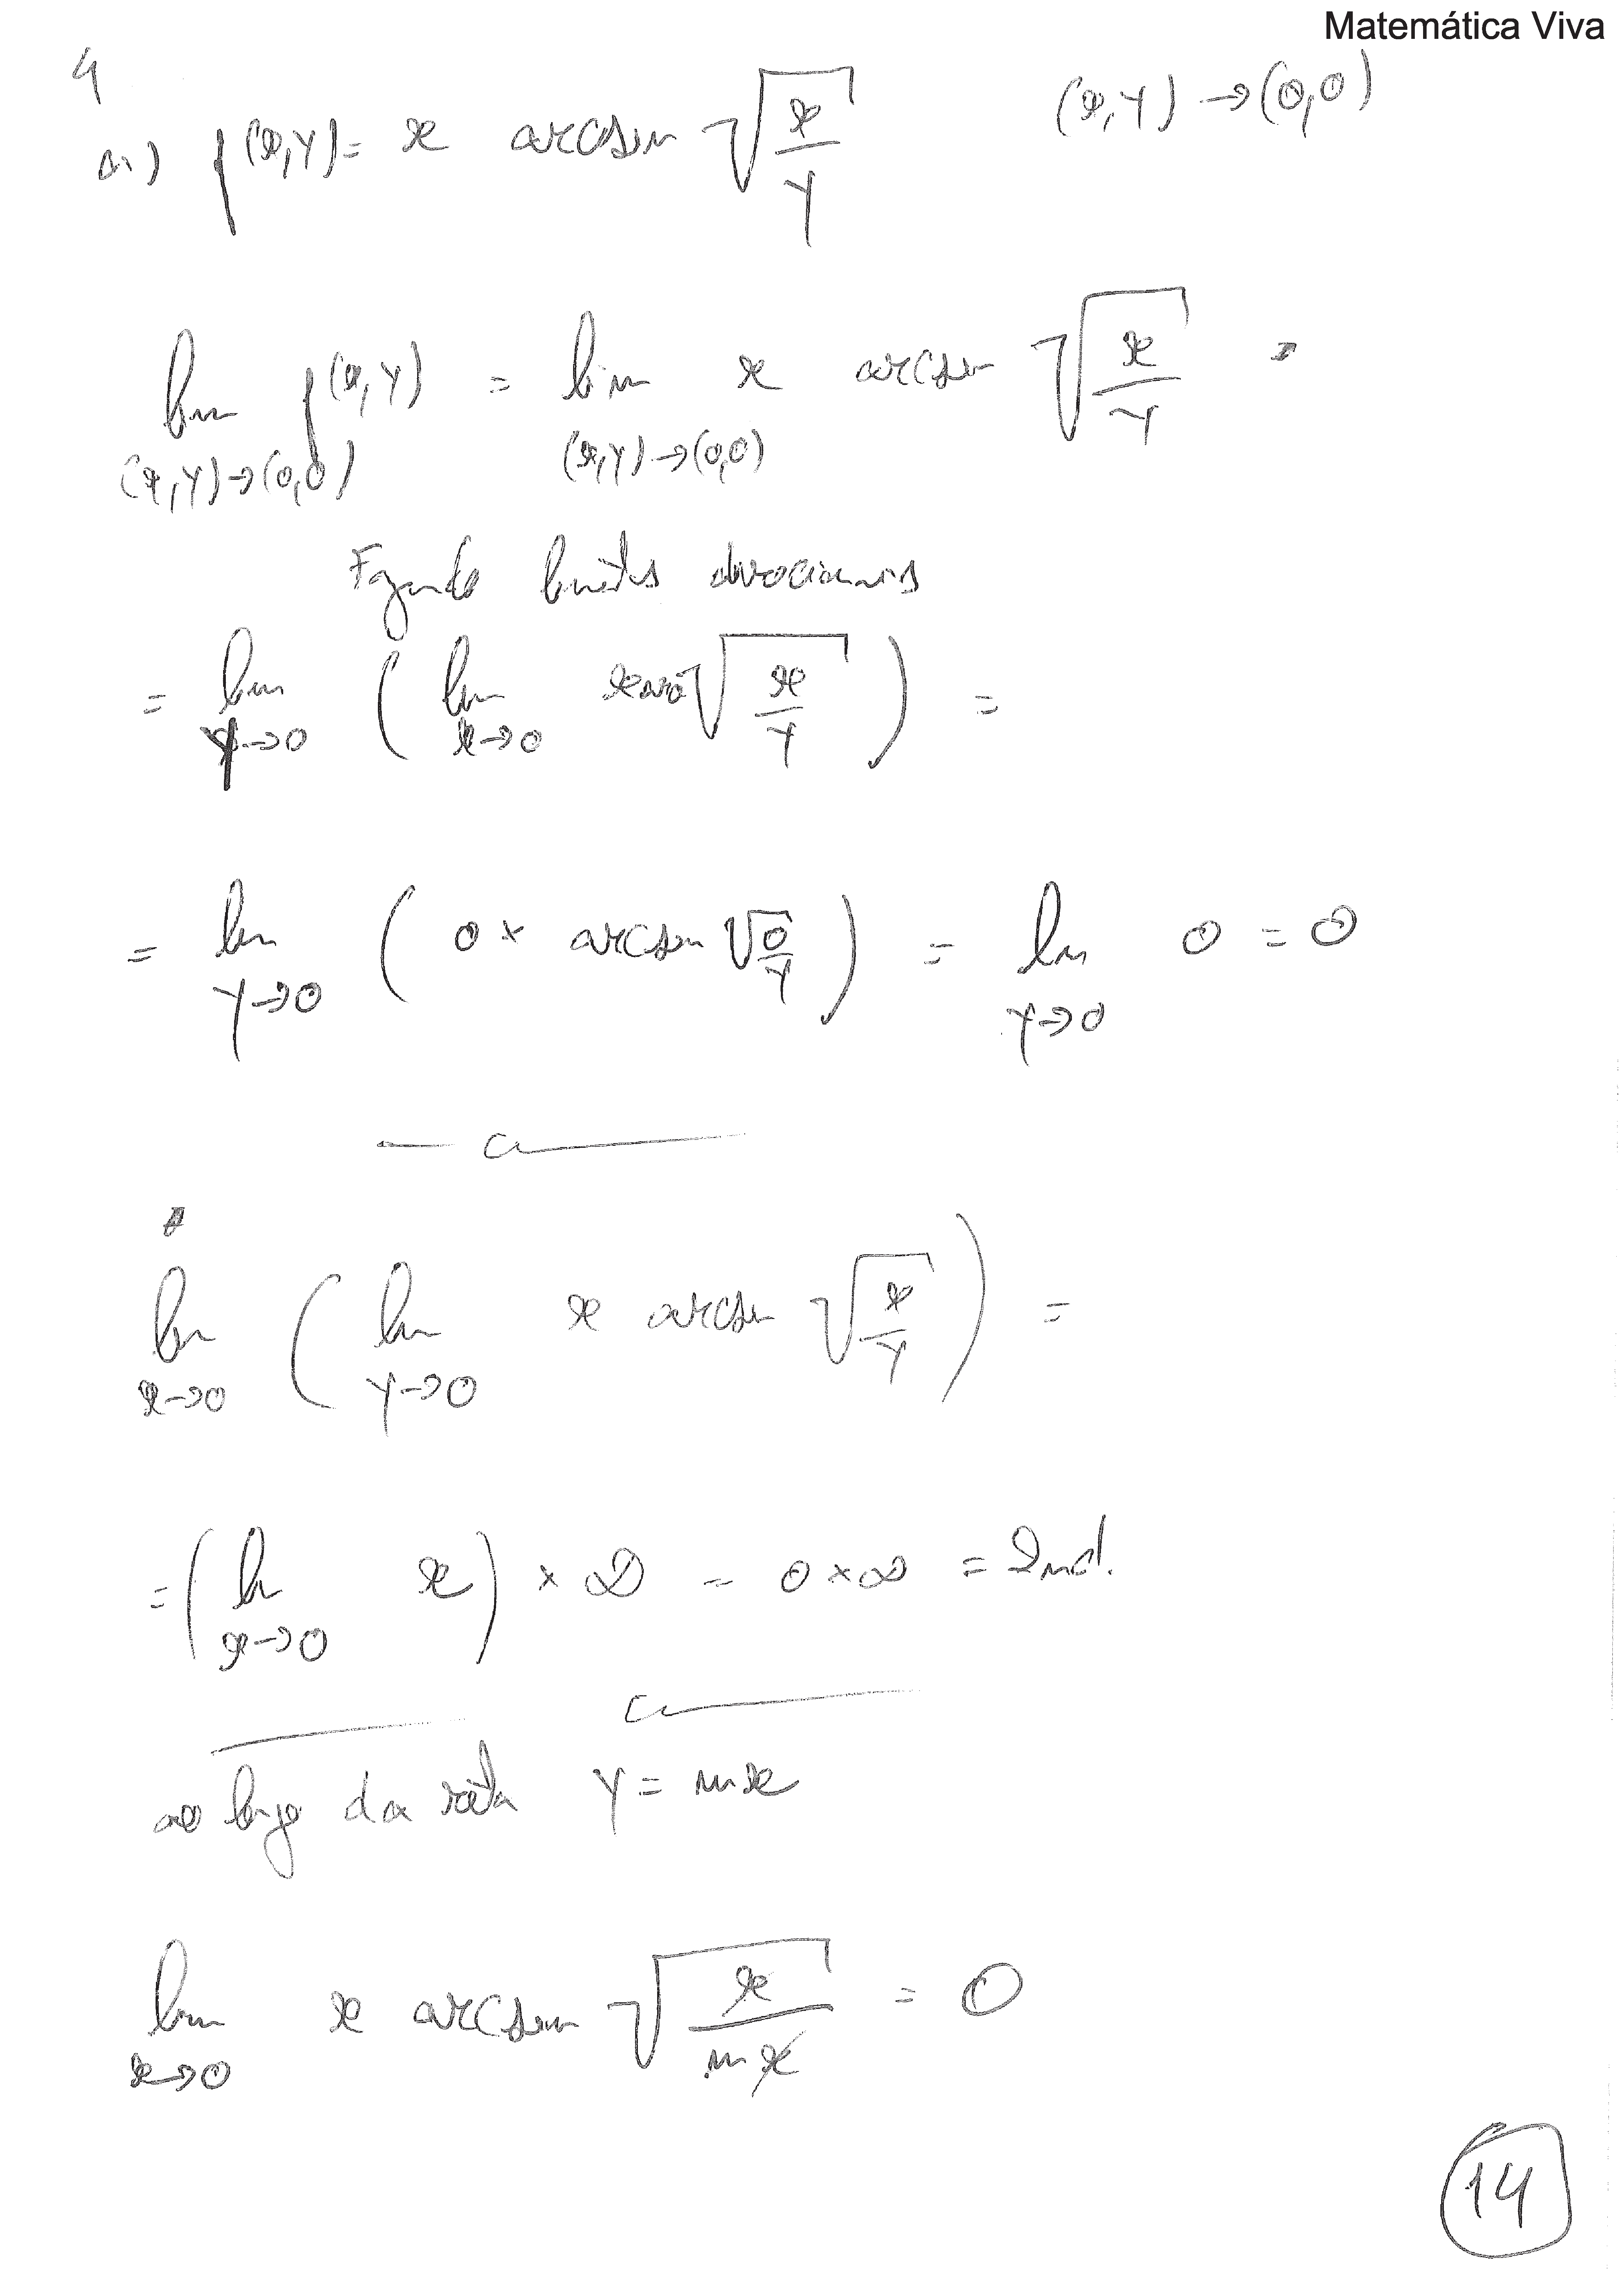 Matemática Viva
4
a) f(x,y) = x arcsin √(x/y) (x,y) → (0,0)
lim (x,y)→(0,0) f(x,y) = lim (x,y)→(0,0) x arcsin √(x/y) =
Fazendo limites direcionais
= lim y→0 ( lim x→0 x arc √(x/y) ) =
= lim y→0 ( 0 × arcsin √(0/y) ) = lim y→0 0 = 0
lim x→0 ( lim y→0 x arcsin √(x/y) ) =
= ( lim x→0 x ) × ∞ = 0 × ∞ = Ind.
ao longo da reta y = mx
lim x→0 x arcsin √(x/mx) = 0
14